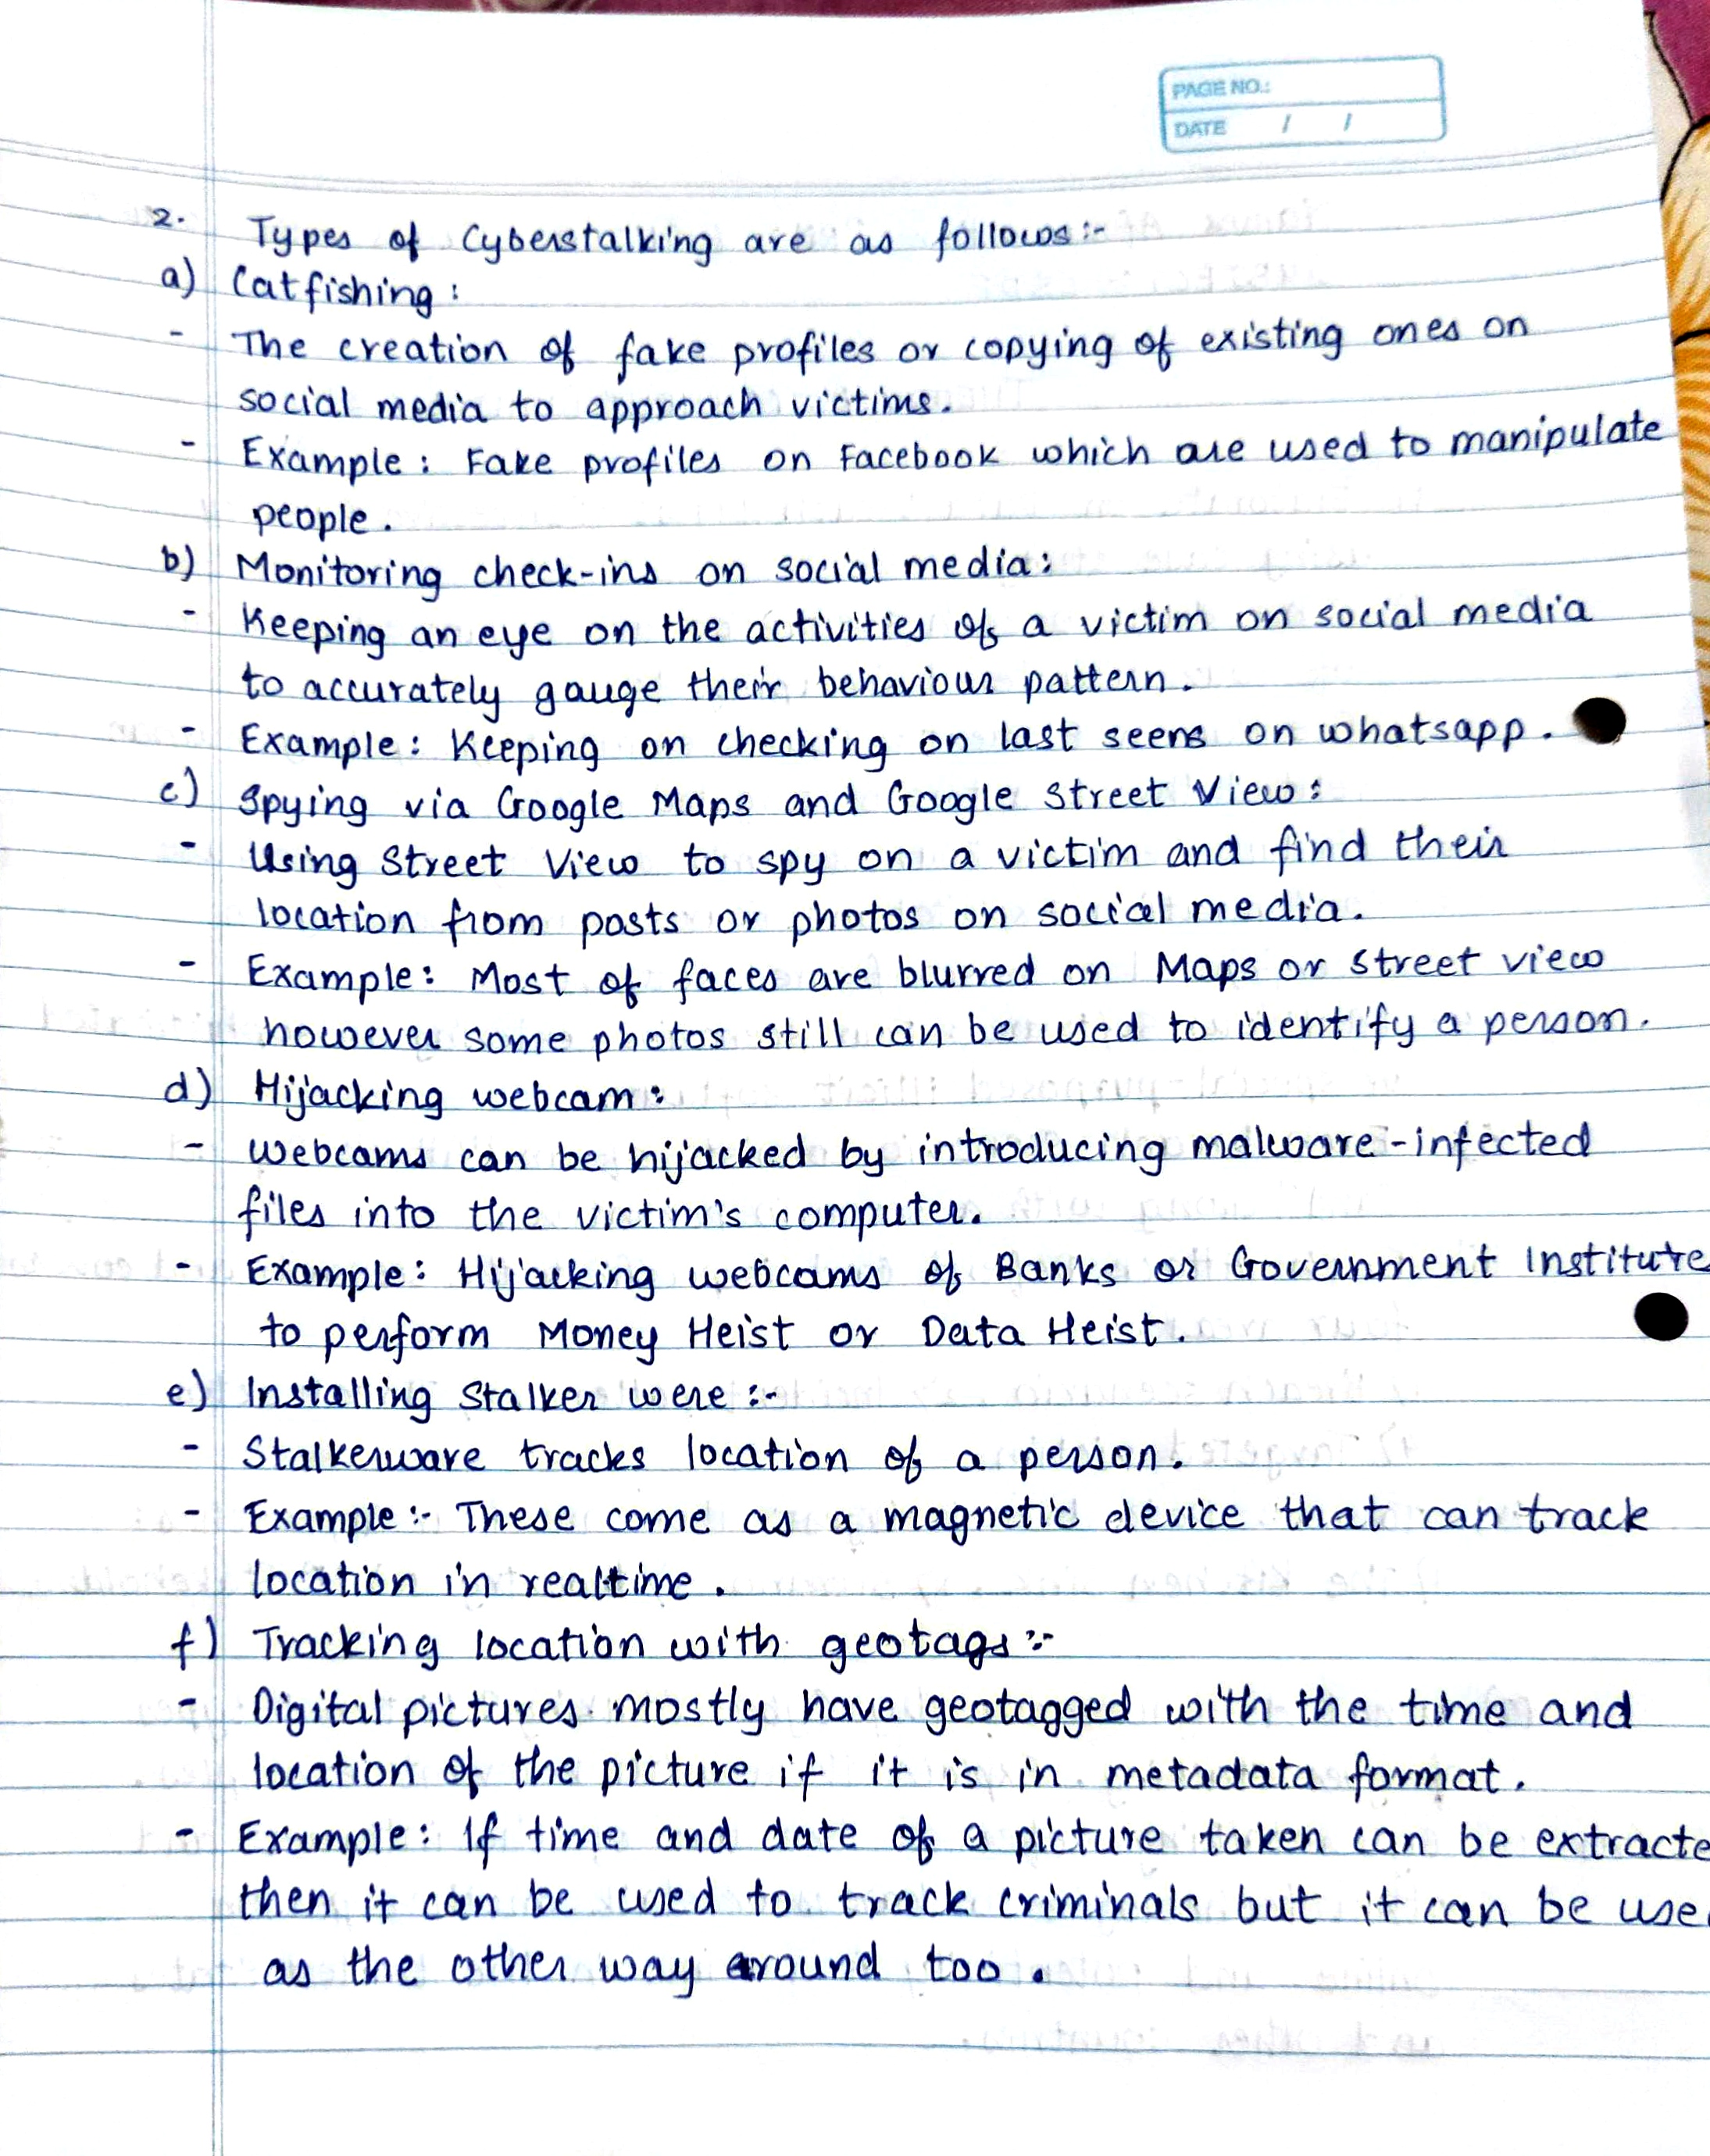 PAGE NO.:
DATE / /
2. Types of Cyberstalking are as follows :-
a) Catfishing :
- The creation of fake profiles or copying of existing ones on
social media to approach victims.
- Example : Fake profiles on Facebook which are used to manipulate
people.
b) Monitoring check-ins on social media :
- Keeping an eye on the activities of a victim on social media
to accurately gauge their behaviour pattern.
- Example : Keeping on checking on last seens on whatsapp.
c) Spying via Google Maps and Google Street View :
- Using Street View to spy on a victim and find their
location from posts or photos on social media.
- Example : Most of faces are blurred on Maps or Street view
however some photos still can be used to identify a person.
d) Hijacking webcam :
- Webcams can be hijacked by introducing malware-infected
files into the victim's computer.
- Example : Hijacking webcams of Banks or Government Institute
to perform Money Heist or Data Heist.
e) Installing Stalker were :-
- Stalkerware tracks location of a person.
- Example :- These come as a magnetic device that can track
location in realtime.
f) Tracking location with geotags :-
- Digital pictures mostly have geotagged with the time and
location of the picture if it is in metadata format.
- Example : If time and date of a picture taken can be extracte
then it can be used to track criminals but it can be use
as the other way around too.